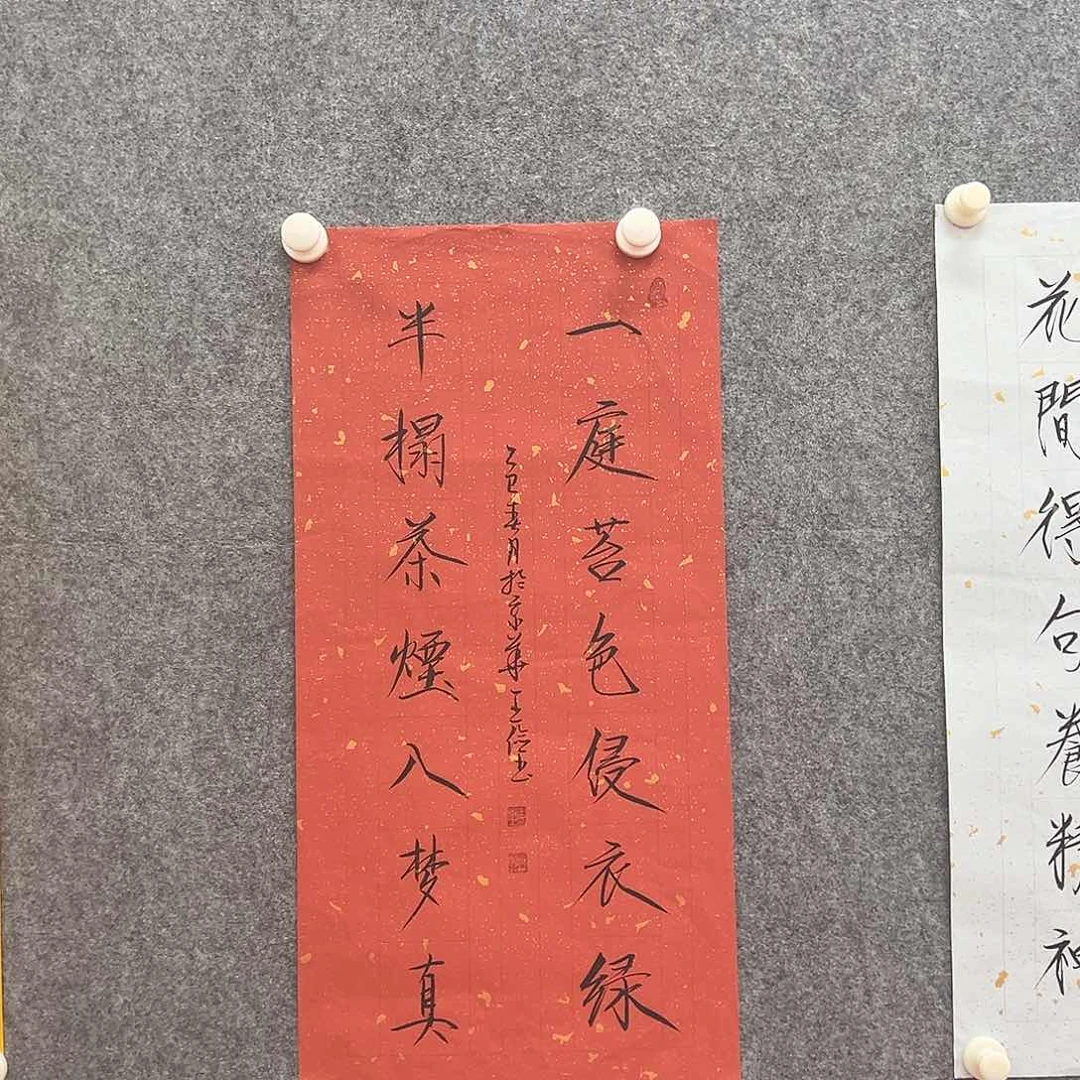 花間得句養精神
一庭苔色侵衣绿
乙巳春月於京華王信书
半榻茶煙入梦真